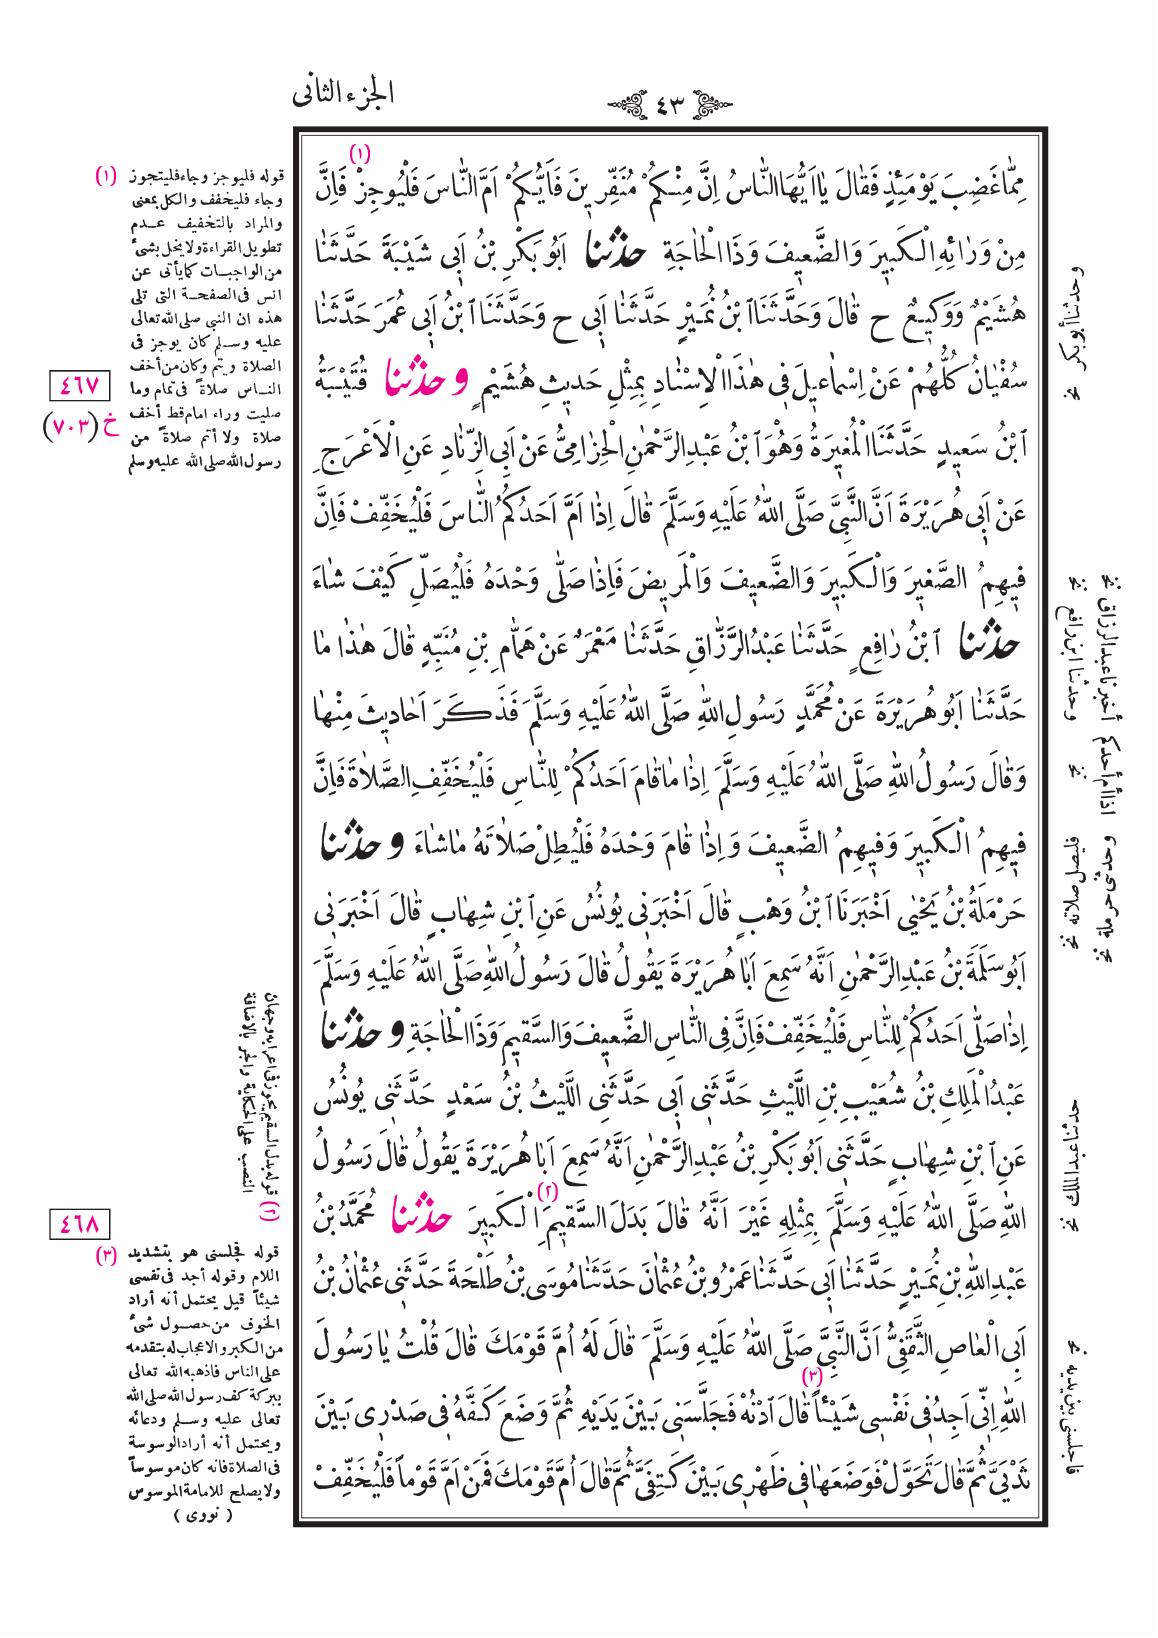 الجزء الثانى
٤٣
(١)
مِمَّا غَضِبَ يَوْمَئِذٍ فَقَالَ يَا اَيُّهَا النَّاسُ اِنَّ مِنْكُمْ مُنَفِّرِينَ فَاَيُّكُمْ اَمَّ النَّاسَ فَلْيُوجِزْ فَاِنَّ
مِنْ وَرَائِهِ الْكَبِيرَ وَالضَّعِيفَ وَذَا الْحَاجَةِ حدثنا اَبُو بَكْرِ بْنُ اَبِى شَيْبَةَ حَدَّثَنَا
هُشَيْمٌ وَوَكِيعٌ ح قَالَ وَحَدَّثَنَا ابْنُ نُمَيْرٍ حَدَّثَنَا اَبِى ح وَحَدَّثَنَا ابْنُ اَبِى عُمَرَ حَدَّثَنَا
سُفْيَانُ كُلُّهُمْ عَنْ اِسْمَاعِيلَ فِى هٰذَا الْاِسْنَادِ بِمِثْلِ حَدِيثِ هُشَيْمٍ و حدثنا قُتَيْبَةُ
ابْنُ سَعِيدٍ حَدَّثَنَا الْمُغِيرَةُ وَهُوَ ابْنُ عَبْدِ الرَّحْمٰنِ الْحِزَامِىُّ عَنْ اَبِى الزِّنَادِ عَنِ الْاَعْرَجِ
عَنْ اَبِى هُرَيْرَةَ اَنَّ النَّبِىَّ صَلَّى اللهُ عَلَيْهِ وَسَلَّمَ قَالَ اِذَا اَمَّ اَحَدُكُمُ النَّاسَ فَلْيُخَفِّفْ فَاِنَّ
فِيهِمُ الصَّغِيرَ وَالْكَبِيرَ وَالضَّعِيفَ وَالْمَرِيضَ فَاِذَا صَلَّى وَحْدَهُ فَلْيُصَلِّ كَيْفَ شَاءَ
حدثنا ابْنُ رَافِعٍ حَدَّثَنَا عَبْدُ الرَّزَّاقِ حَدَّثَنَا مَعْمَرٌ عَنْ هَمَّامِ بْنِ مُنَبِّهٍ قَالَ هٰذَا مَا
حَدَّثَنَا اَبُو هُرَيْرَةَ عَنْ مُحَمَّدٍ رَسُولِ اللهِ صَلَّى اللهُ عَلَيْهِ وَسَلَّمَ فَذَكَرَ اَحَادِيثَ مِنْهَا
وَقَالَ رَسُولُ اللهِ صَلَّى اللهُ عَلَيْهِ وَسَلَّمَ اِذَا مَا قَامَ اَحَدُكُمْ لِلنَّاسِ فَلْيُخَفِّفِ الصَّلَاةَ فَاِنَّ
فِيهِمُ الْكَبِيرَ وَفِيهِمُ الضَّعِيفَ وَاِذَا قَامَ وَحْدَهُ فَلْيُطِلْ صَلَاتَهُ مَا شَاءَ و حدثنا
حَرْمَلَةُ بْنُ يَحْيٰى اَخْبَرَنَا ابْنُ وَهْبٍ قَالَ اَخْبَرَنِى يُونُسُ عَنِ ابْنِ شِهَابٍ قَالَ اَخْبَرَنِى
اَبُو سَلَمَةَ بْنُ عَبْدِ الرَّحْمٰنِ اَنَّهُ سَمِعَ اَبَا هُرَيْرَةَ يَقُولُ قَالَ رَسُولُ اللهِ صَلَّى اللهُ عَلَيْهِ وَسَلَّمَ
اِذَا صَلَّى اَحَدُكُمْ لِلنَّاسِ فَلْيُخَفِّفْ فَاِنَّ فِى النَّاسِ الضَّعِيفَ وَالسَّقِيمَ وَذَا الْحَاجَةِ و حدثنا
عَبْدُ الْمَلِكِ بْنُ شُعَيْبِ بْنِ اللَّيْثِ حَدَّثَنِى اَبِى حَدَّثَنِى اللَّيْثُ بْنُ سَعْدٍ حَدَّثَنِى يُونُسُ
عَنِ ابْنِ شِهَابٍ حَدَّثَنِى اَبُو بَكْرِ بْنُ عَبْدِ الرَّحْمٰنِ اَنَّهُ سَمِعَ اَبَا هُرَيْرَةَ يَقُولُ قَالَ رَسُولُ
(٢)
اللهِ صَلَّى اللهُ عَلَيْهِ وَسَلَّمَ بِمِثْلِهِ غَيْرَ اَنَّهُ قَالَ بَدَلَ السَّقِيمِ الْكَبِيرَ حدثنا مُحَمَّدُ بْنُ
عَبْدِ اللهِ بْنِ نُمَيْرٍ حَدَّثَنَا اَبِى حَدَّثَنَا عَمْرُو بْنُ عُثْمَانَ حَدَّثَنَا مُوسَى بْنُ طَلْحَةَ حَدَّثَنِى عُثْمَانُ بْنُ
اَبِى الْعَاصِ الثَّقَفِىُّ اَنَّ النَّبِىَّ صَلَّى اللهُ عَلَيْهِ وَسَلَّمَ قَالَ لَهُ اُمَّ قَوْمَكَ قَالَ قُلْتُ يَا رَسُولَ
(٣)
اللهِ اِنِّى اَجِدُ فِى نَفْسِى شَيْئًا قَالَ ادْنُهْ فَجَلَّسَنِى بَيْنَ يَدَيْهِ ثُمَّ وَضَعَ كَفَّهُ فِى صَدْرِى بَيْنَ
ثَدْيَىَّ ثُمَّ قَالَ تَحَوَّلْ فَوَضَعَهَا فِى ظَهْرِى بَيْنَ كَتِفَىَّ ثُمَّ قَالَ اُمَّ قَوْمَكَ فَمَنْ اَمَّ قَوْمًا فَلْيُخَفِّفْ
وحدثنا أبو بكر نخ
أخبرنا عبدالرزاق نخ
وحدثنا ابن رافع نخ
اذا أم أحدكم نخ
وحدثنى حرملة نخ
فليصل صلاته نخ
حدثنا عبدالملك نخ
فاجلسنى بين يديه نخ
(١) قوله فليوجز وجاء فليتجوز
وجاء فليخفف والكل بمعنى
والمراد بالتخفيف عدم
تطويل القراءة ولا يخل بشئ
من الواجبات كما يأتى عن
انس فى الصفحة التى تلى
هذه ان النبى صلى الله تعالى
عليه وسلم كان يوجز فى
الصلاة ويتم وكان من أخف
الناس صلاة فى تمام وما
صليت وراء امام قط أخف
صلاة ولا أتم صلاة من
رسول الله صلى الله عليه وسلم
٤٦٧
خ (٧٠٣)
(٢) قوله بدل السقيم يجوز فى اعرابه وجهان
النصب على الحكاية والجر بالاضافة
٤٦٨
(٣) قوله فجلسنى هو بتشديد
اللام وقوله أجد فى نفسى
شيئاً قيل يحتمل أنه أراد
الخوف من حصول شئ
من الكبر والاعجاب له بتقدمه
على الناس فاذهبه الله تعالى
ببركة كف رسول الله صلى الله
تعالى عليه وسلم ودعائه
ويحتمل أنه أراد الوسوسة
فى الصلاة فانه كان موسوساً
ولا يصلح للامامة الموسوس
( نووى )